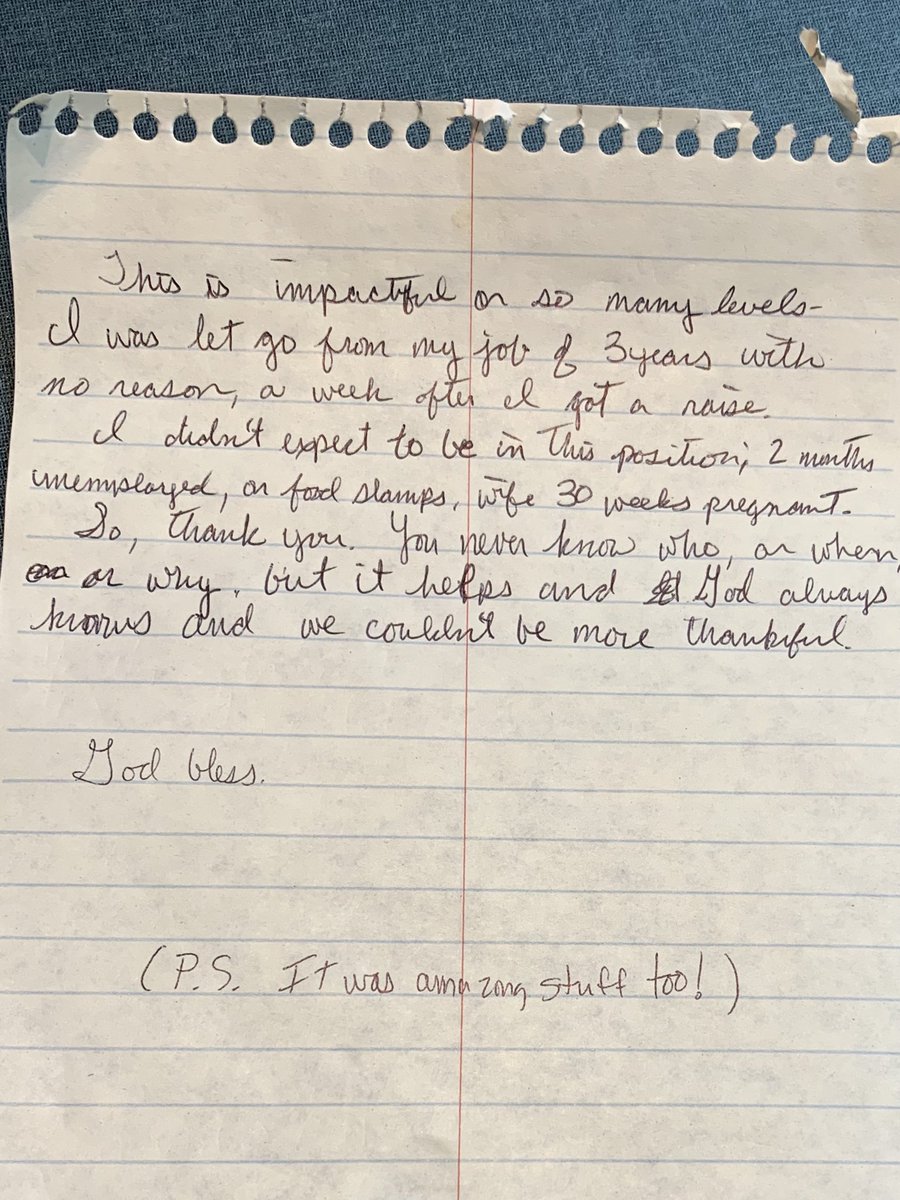 This is impactful on so many levels-
I was let go from my job of 3 years with
no reason, a week after I got a raise.
I didn't expect to be in this position; 2 months
unemployed, on food stamps, wife 30 weeks pregnant.
So, thank you. You never know who, or when,
or why, but it helps and God always
knows and we couldn't be more thankful.
God bless.
(P.S. It was amazing stuff too!)